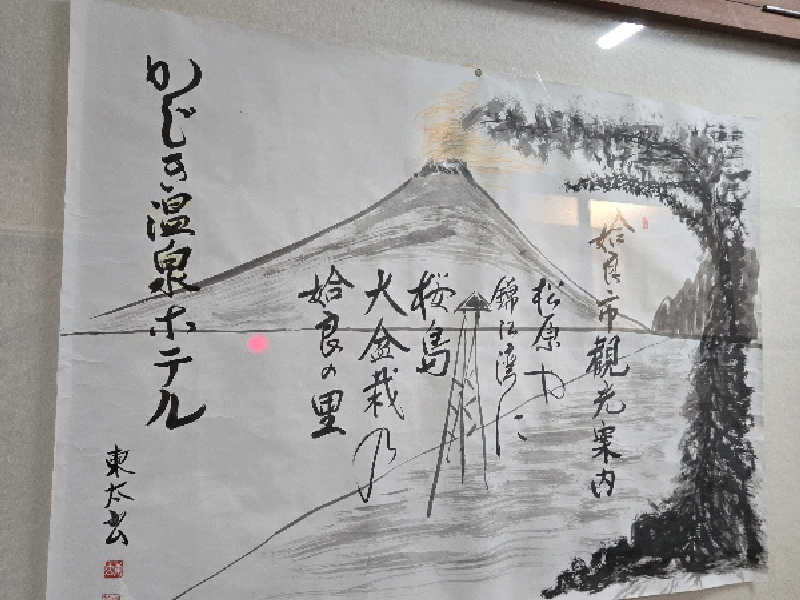 姶良市観光案内
松原や
錦江湾に
桜島
大盆栽乃
姶良の里
かじき温泉ホテル
東太書